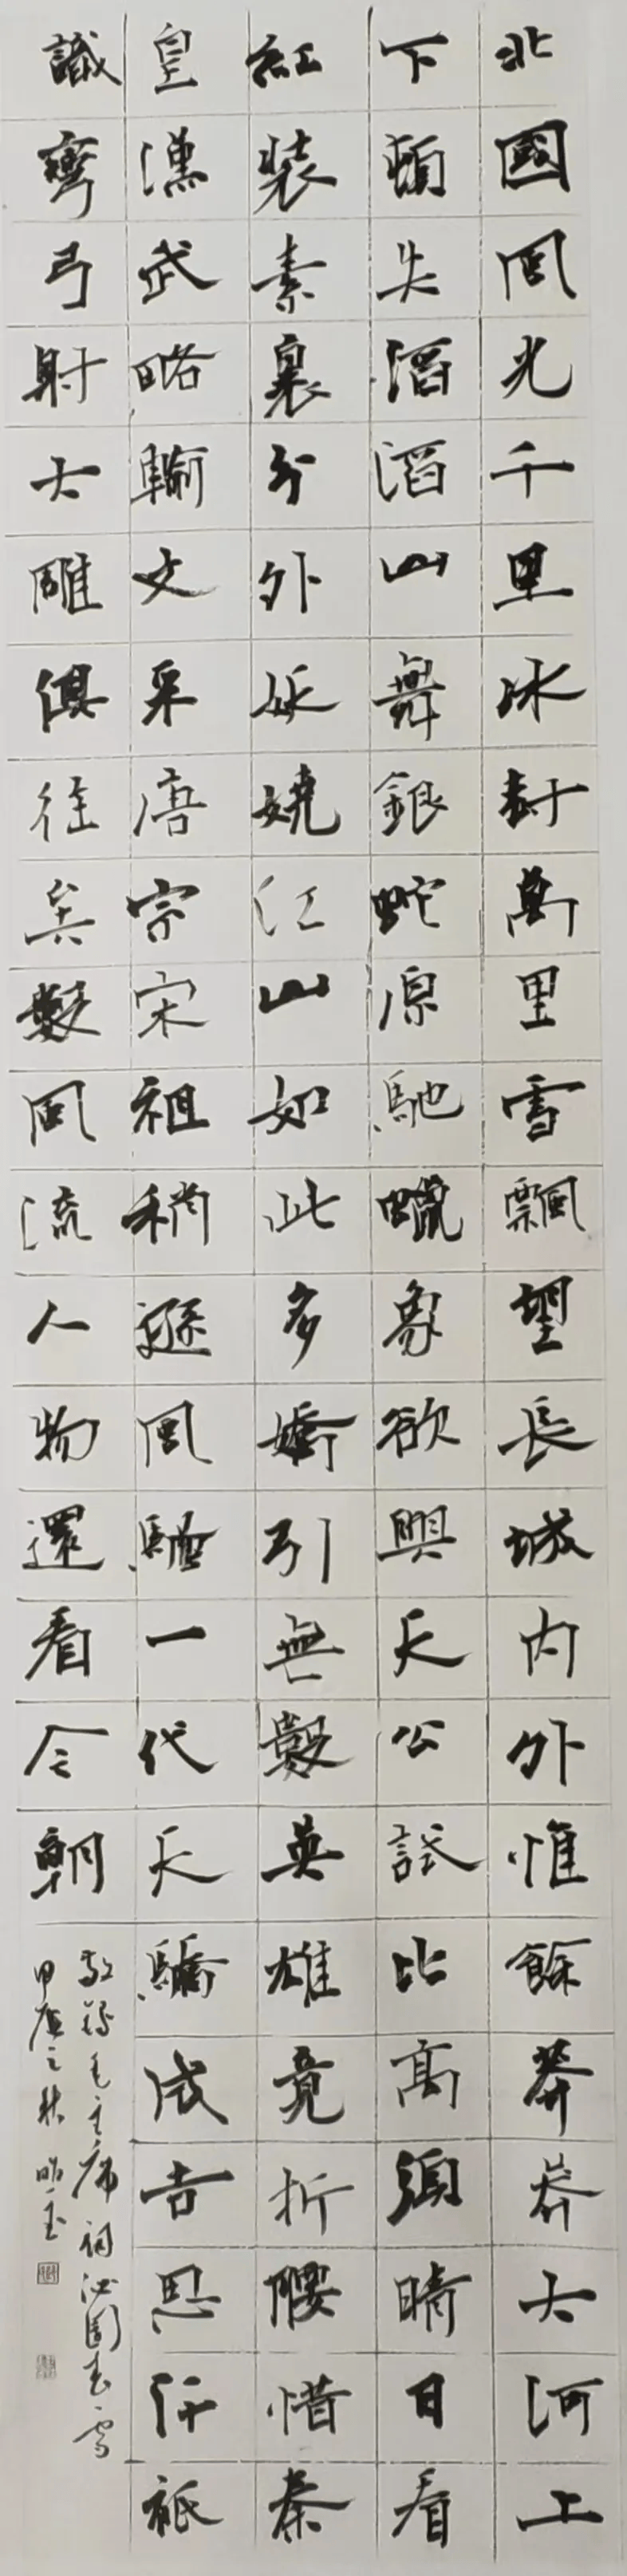 北國風光千里冰封萬里雪飄望長城内外惟餘莽莽大河上
下頓失滔滔山舞銀蛇原馳蠟象欲與天公試比高須晴日看
紅裝素裹分外妖嬈江山如此多嬌引無數英雄竟折腰惜秦
皇漢武略輸文采唐宗宋祖稍遜風騷一代天驕成吉思汗祇
識彎弓射大雕俱往矣數風流人物還看今朝
敬錄毛主席詞沁園春雪
甲辰之秋